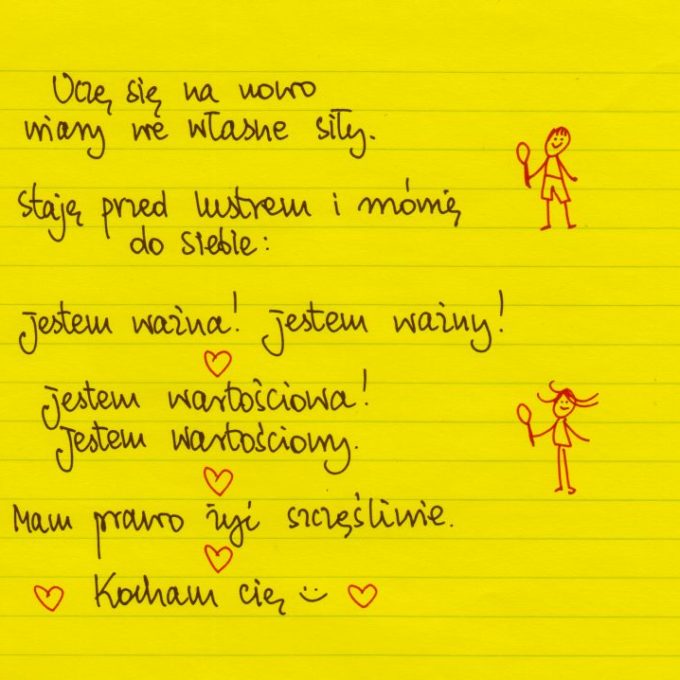 Uczę się na nowo
wiary we własne siły.
Staję przed lustrem i mówię
do siebie:
jestem ważna! jestem ważny!
jestem wartościowa!
Jestem wartościowy.
Mam prawo żyć szczęśliwie.
Kocham cię